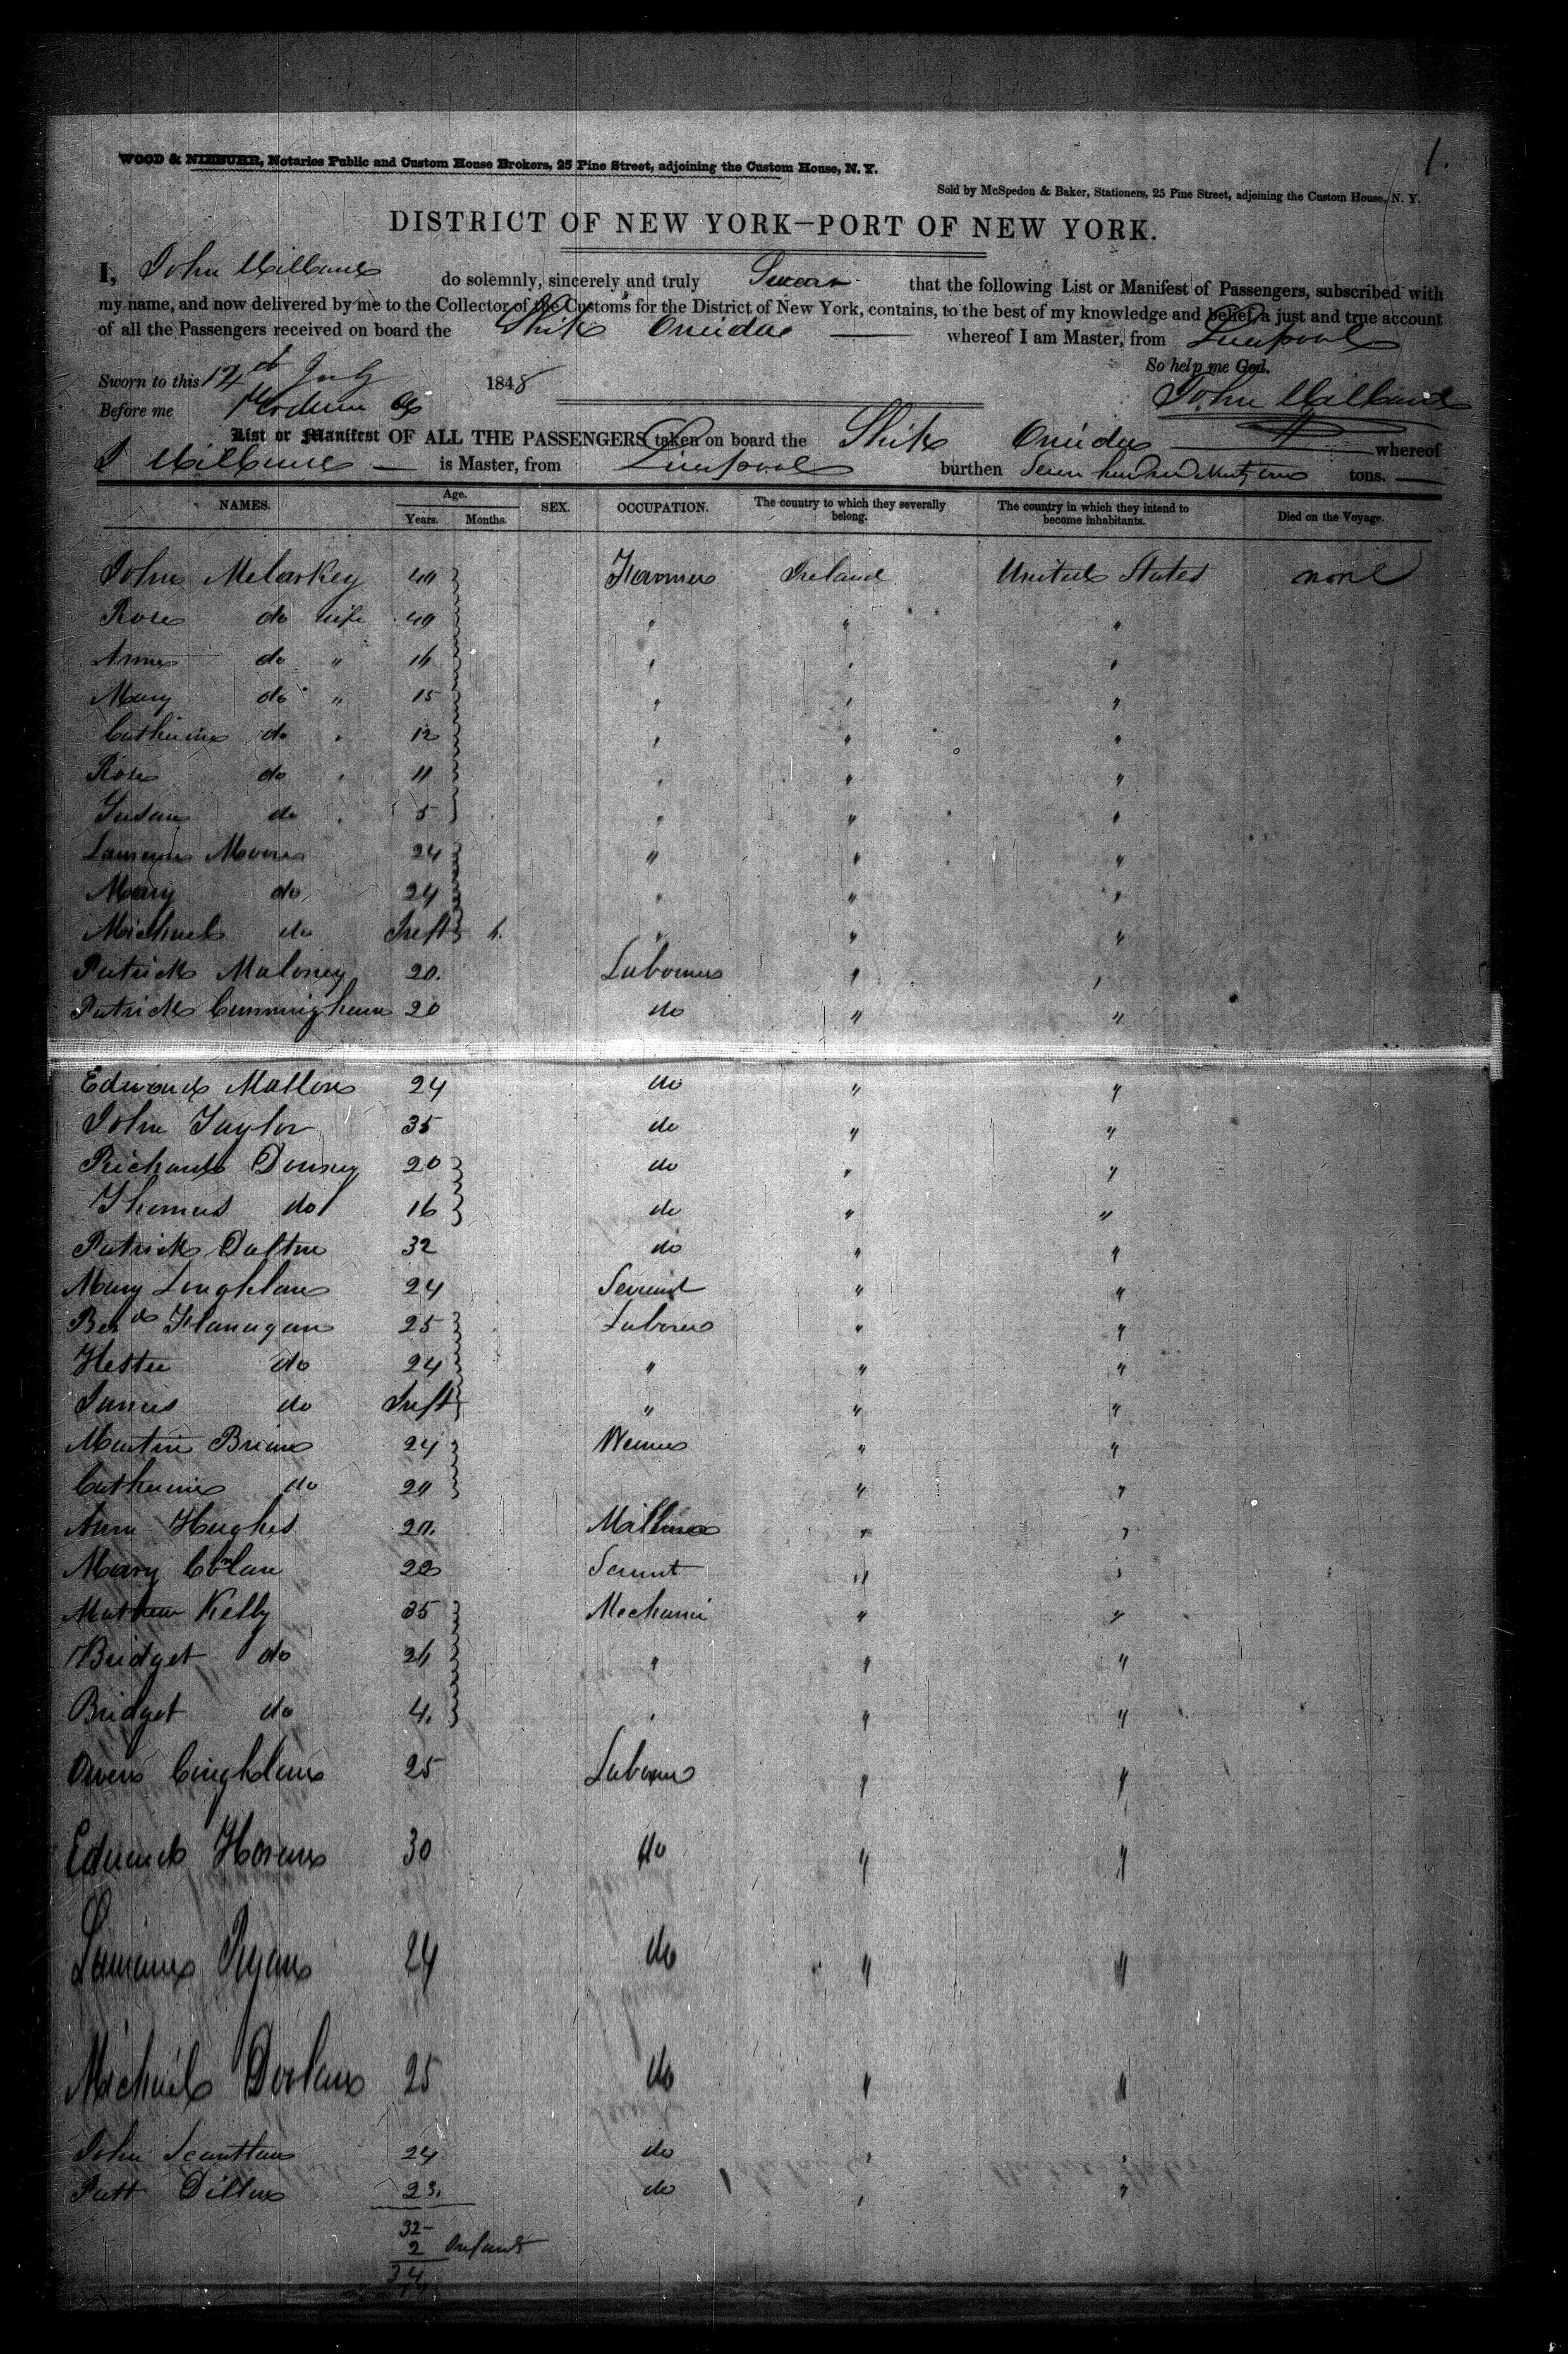 1.
WOOD & NIEBUHR, Notaries Public and Custom House Brokers, 25 Pine Street, adjoining the Custom House, N. Y.
Sold by McSpedon & Baker, Stationers, 25 Pine Street, adjoining the Custom House, N. Y.
DISTRICT OF NEW YORK—PORT OF NEW YORK.
I, John do solemnly, sincerely and truly Swear that the following List or Manifest of Passengers, subscribed with
my name, and now delivered by me to the Collector of the Customs for the District of New York, contains, to the best of my knowledge and belief, a just and true account
of all the Passengers received on board the Ship Oneida whereof I am Master, from Liverpool
So help me God.
Sworn to this 12th July 1848
John
Before me
List or Manifest OF ALL THE PASSENGERS taken on board the Ship Oneida whereof
is Master, from Liverpool burthen Seven hundred tons.
NAMES. Age. Years. Months. SEX. OCCUPATION. The country to which they severally belong. The country in which they intend to become inhabitants. Died on the Voyage.
John Melarkey 40 Farmer Ireland United States none
Rose do wife 40 " " "
Anne do " 16 " " "
Mary do " 15 " " "
Catherine do " 12 " " "
Rose do " 11 " " "
Susan do " 5 " " "
Lawrence Moore 24 " " "
Mary do 24 " " "
Michael do Inft " " "
Patrick Maloney 20. Labourer " "
Patrick Cunningham 20 do " "
Edward Mallon 24 do " "
John Taylor 35 do " "
Richard Downey 20 do " "
Thomas do 16 do " "
Patrick Dalton 32 do " "
Mary Loughlan 24 Servant " "
Berd Flanagan 25 Laborer " "
Hester do 24 " " "
James do Inft " " "
Martin Brian 24 Weaver " "
Catherine do 20 " "
Ann Hughes 20. Milliner " "
Mary Conlan 20 Servant " "
Mathew Kelly 35 Mechanic " "
Bridget do 26 " " "
Bridget do 4. " " "
Owen 25 Labourer " "
Edward Horan 30 do " "
Lawrence Ryan 24 do " "
Michael Doolan 25 do " "
John Scantlan 24 do " "
Patt Dillon 23. do " "
32
2 Infants
34